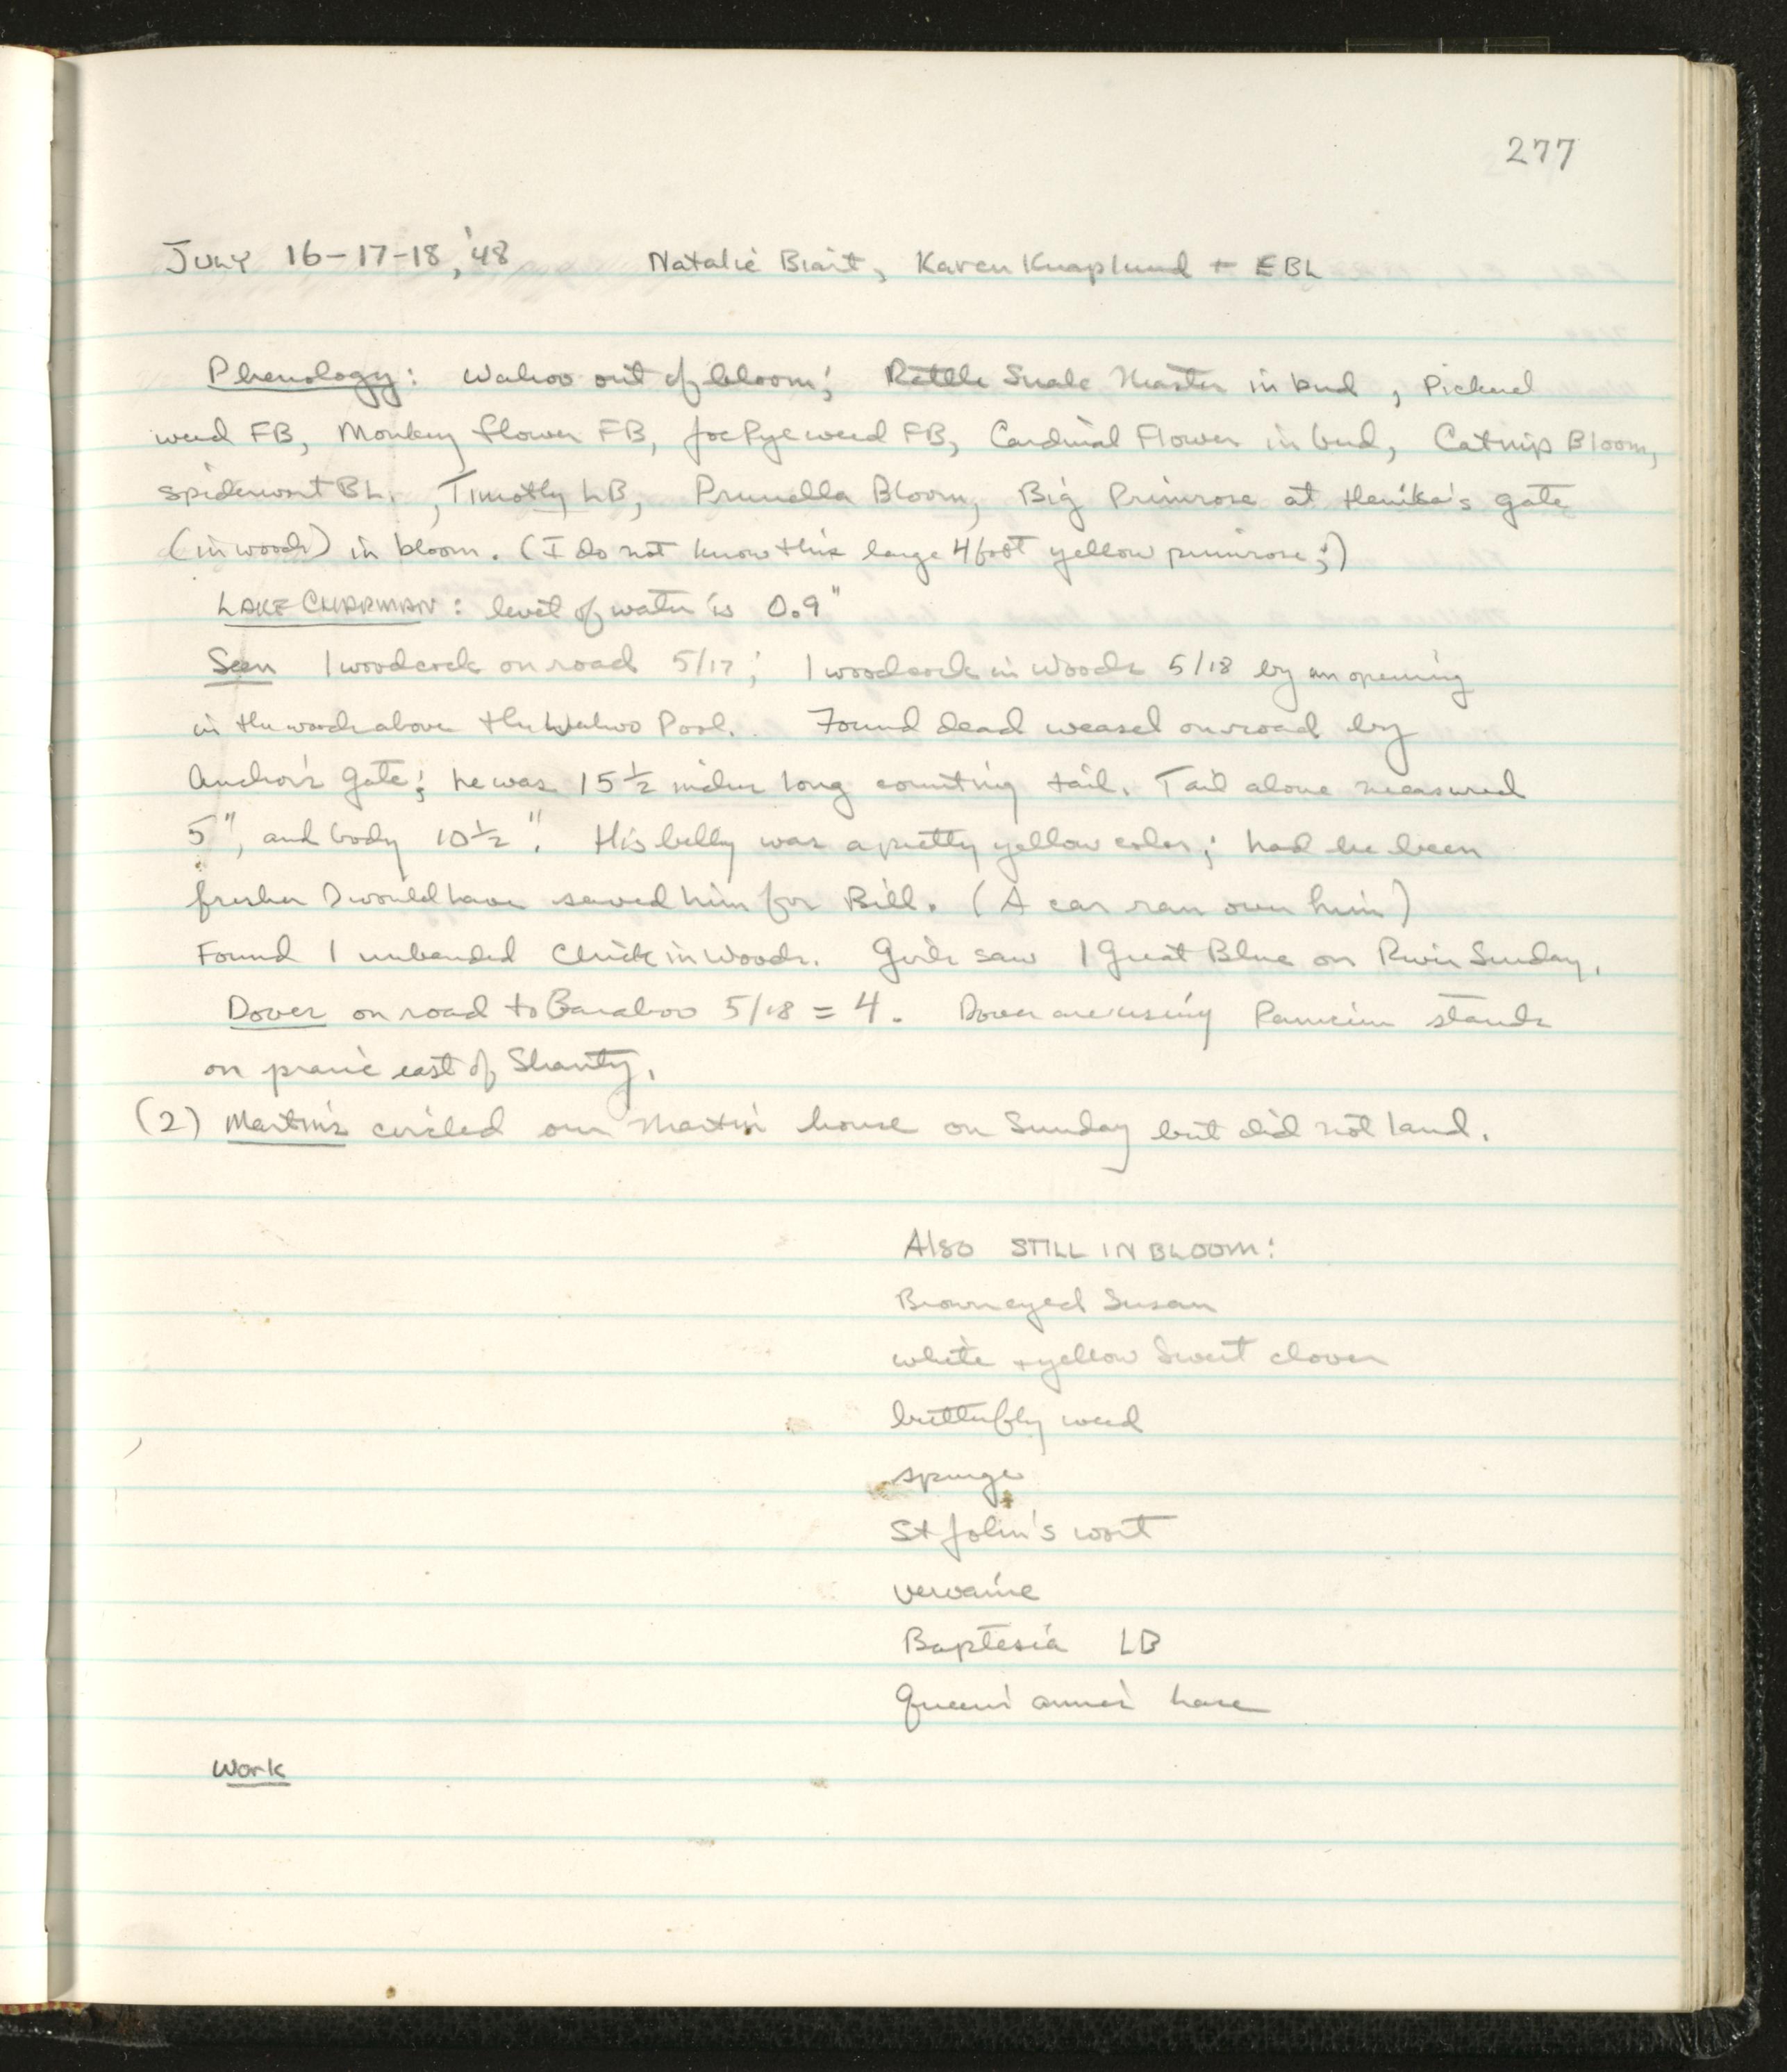 277
July 16-17-18, '48 Natalie Brait, Karen Knaplund + EBL
Phenology: Wahoo out of bloom; Rattle Snake Master in bud, Pickerel
weed FB, Monkey flower FB, Joe Pye weed FB, Cardinal Flower in bud, Catnip Bloom,
spiderwort BL., Timothy LB, Prunella Bloom, Big Primrose at Henika's gate
(in woods) in bloom. (I do not know this large 4 foot yellow primrose;)
LAKE CHAPMAN: level of water is 0.9"
Seen 1 woodcock on road 5/17; 1 woodcock in Woods 5/18 by an opening
in the woods above the Wahoo Pool. Found dead weasel on road by
Anchor's Gate; he was 15 1/2 inches long counting tail. Tail alone measured
5", and body 10 1/2". His belly was a pretty yellow color; had he been
fresher I would have saved him for Bill. (A car ran over him)
Found 1 unbanded Chick in Woods. Girls saw 1 Great Blue on River Sunday.
Doves on road to Baraboo 5/18 = 4. Doves are using Panicum stands
on prairie east of Shanty.
(2) Martins circled our Martin house on Sunday but did not land.
Also STILL IN BLOOM:
Brown eyed Susan
white + yellow Sweet clover
butterfly weed
spurge
St John's wort
vervaine
Baptesia LB
Queen's anne's lace
Work